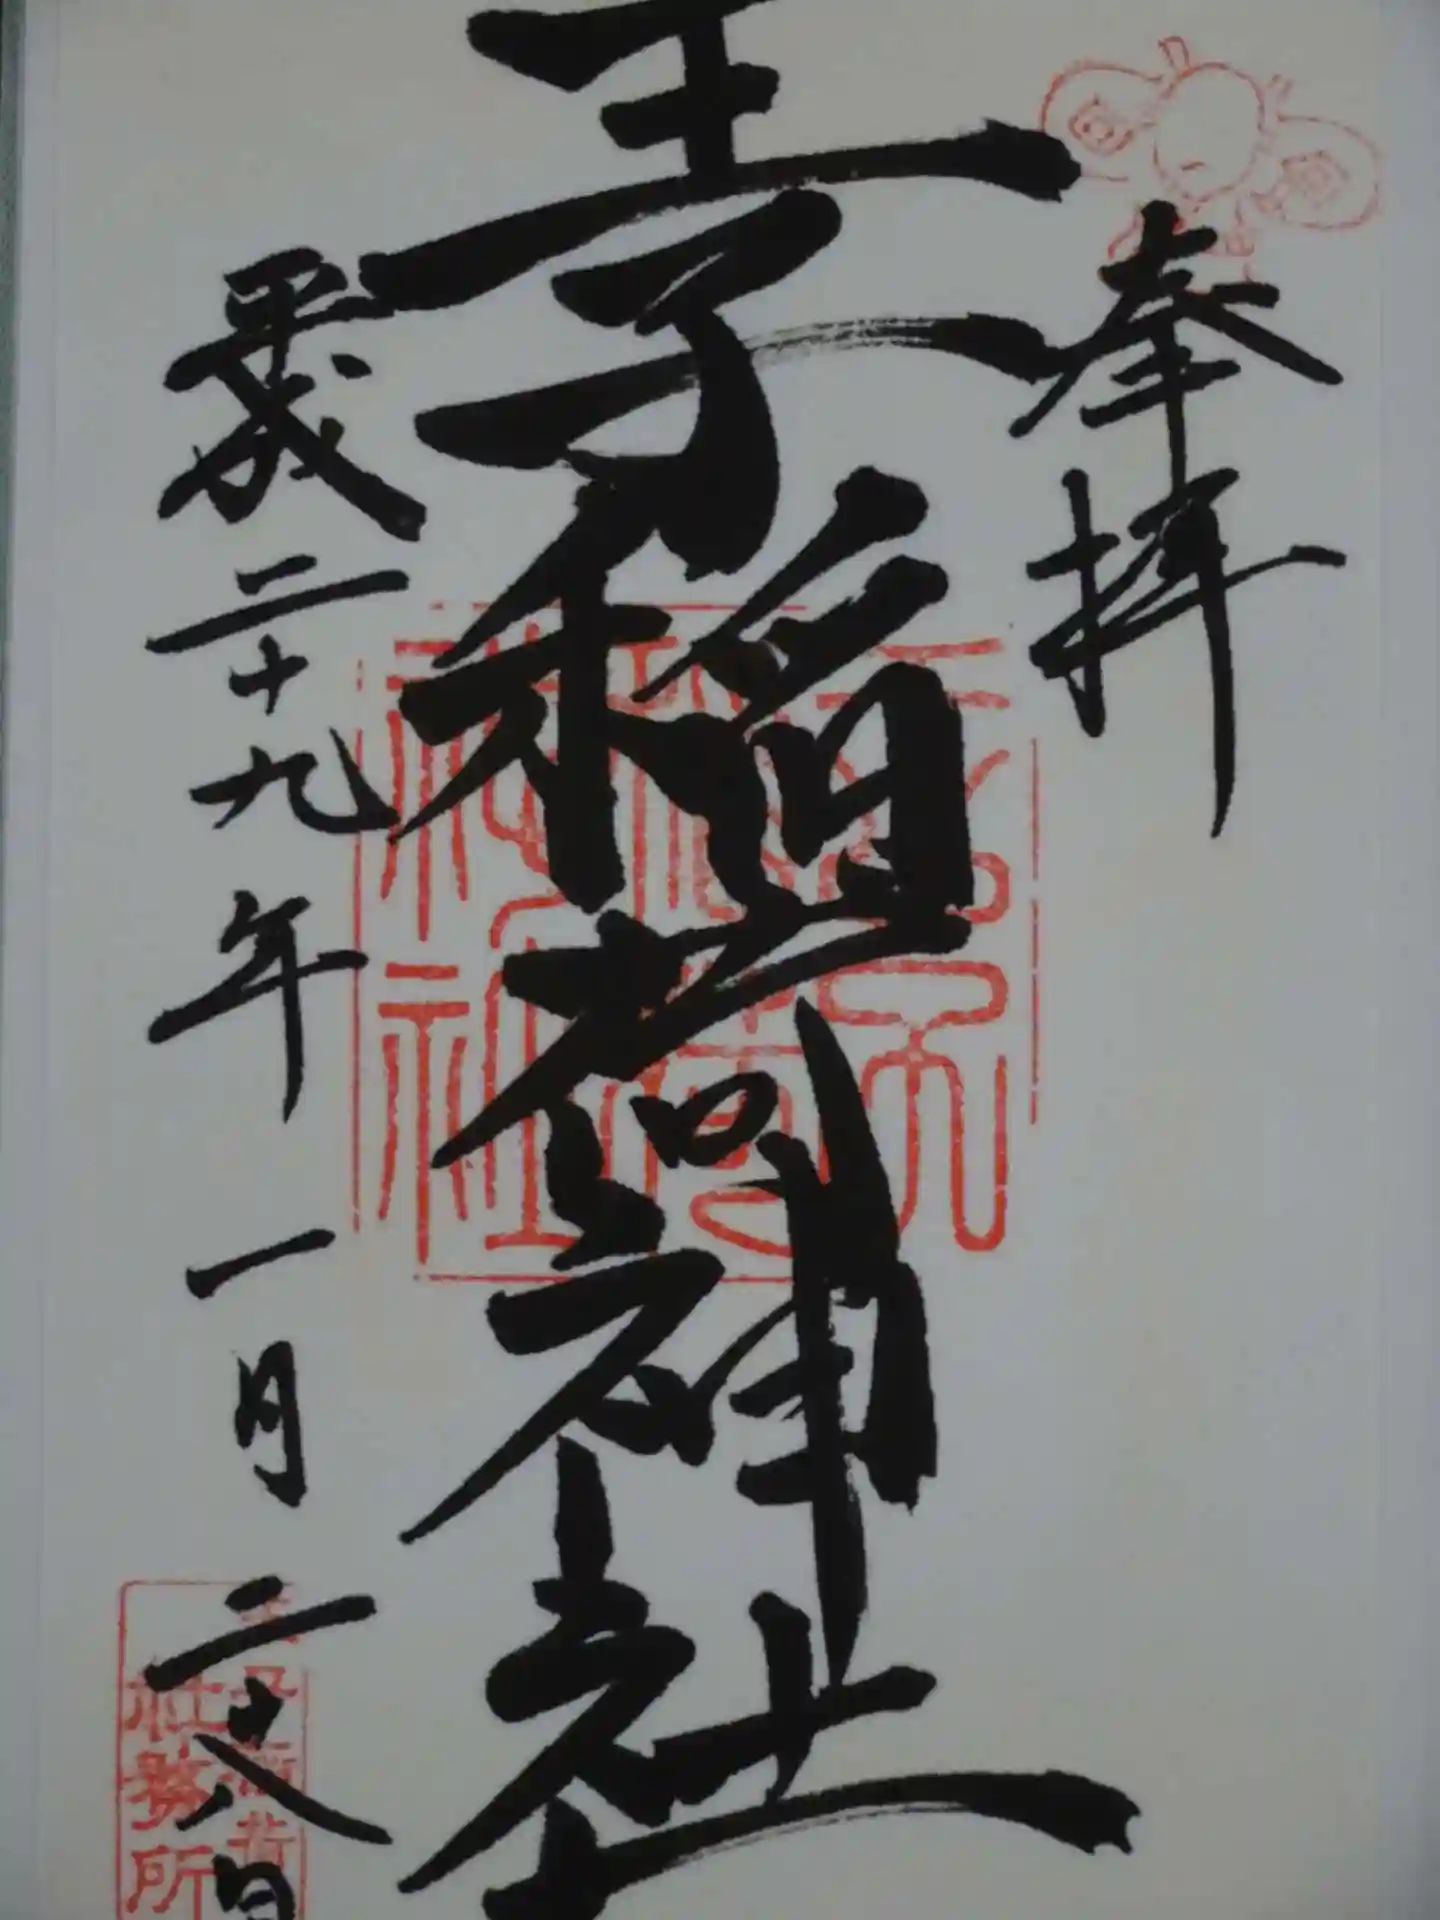 奉拝
王子稲荷神社
平成二十九年一月二十八日
王子稲荷神社
社務所